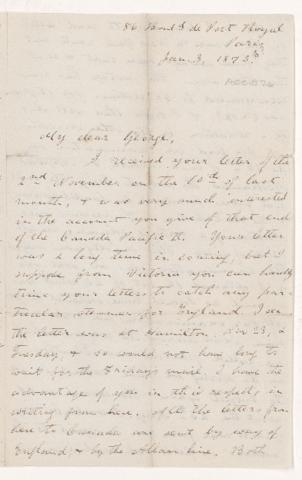 86 Boul'd de Port Royal
Paris
Jan. 3, 1873
My dear George,
I received your letter of the
2nd November on the 10th of last
month, & was very much interested
in the account you give of that end
of the Canada Pacific R. Your letter
was a long time in coming, but I
suppose from Victoria you can hardly
time your letters to catch any par-
ticular steamer for England. I see
the letter was at Hamilton, 23, a
Tuesday, & so would not have long to
wait for the Friday's mail. I have the
advantage of you in this respect, in
writing from here. All the letters from
here to Canada are sent by way of
England & by the Allan line. Both